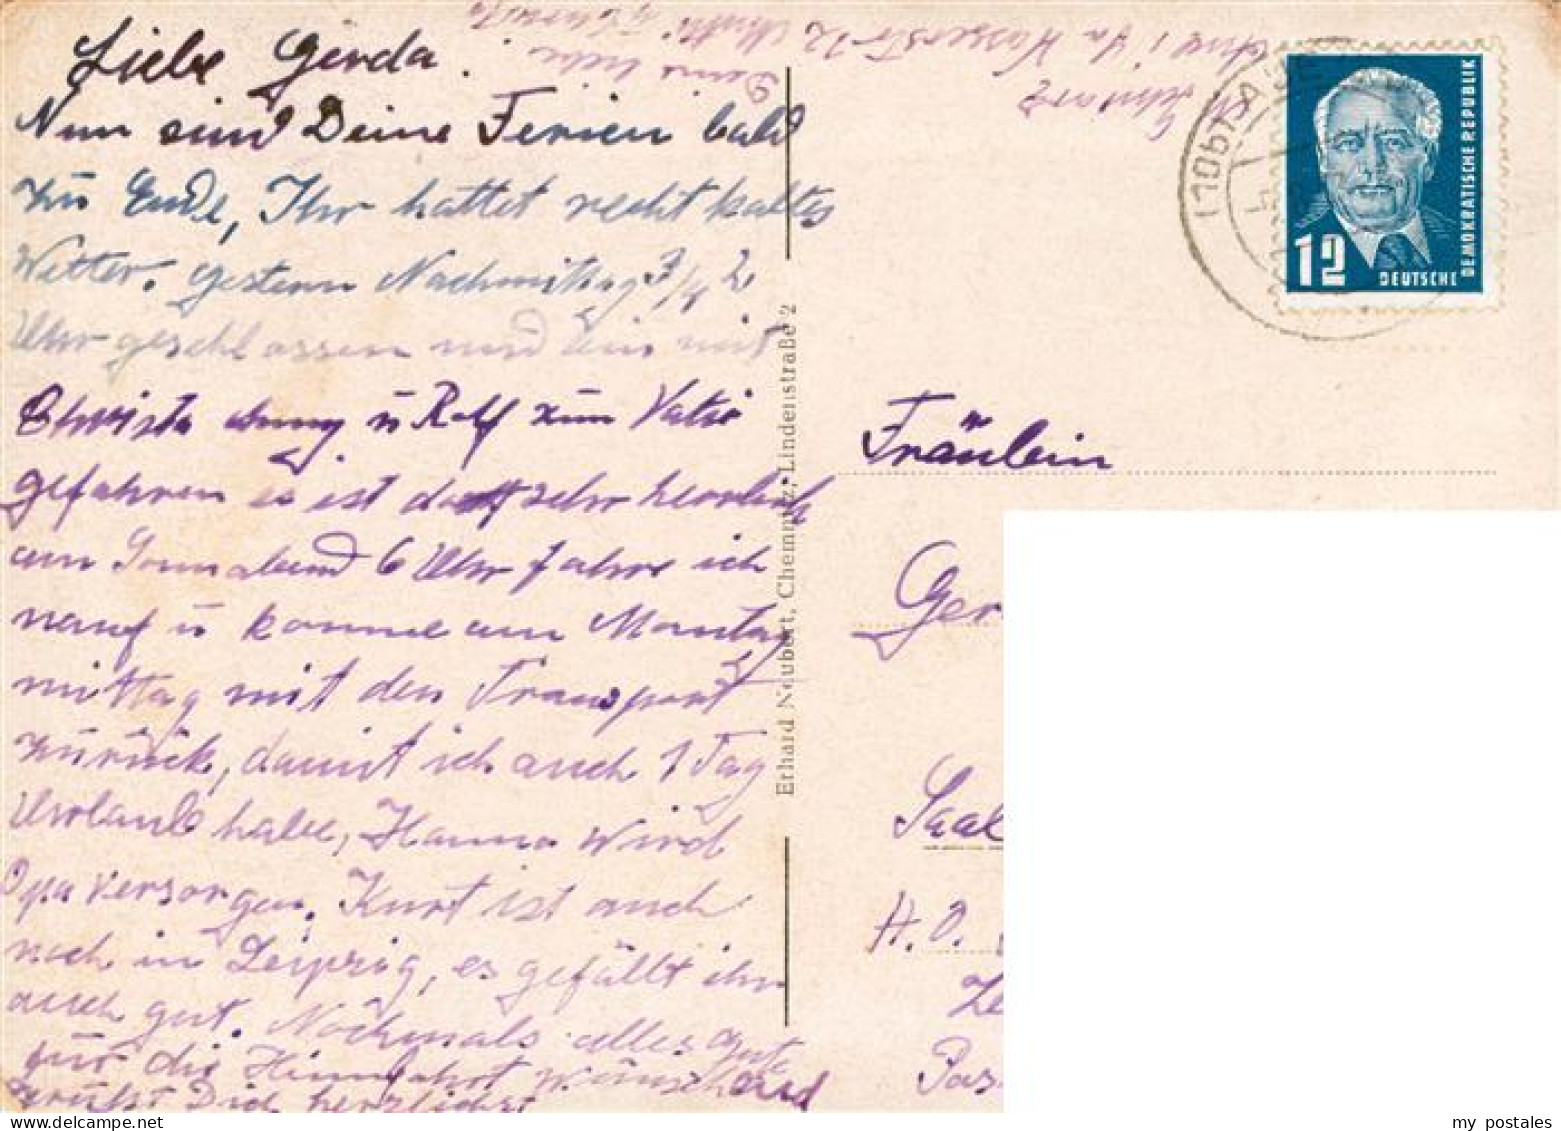 Liebe Gerda.
Nun sind Deine Ferien bald
zu Ende, Ihr hattet recht kaltes
Wetter. Gestern Nachmittag 3/4 2
Uhr geschlossen und bin mit
Christa u Rolf zum Vati
gefahren es ist dort sehr herrlich
am Sonnabend 6 Uhr fahre ich
nauf u komme am Montag
mittag mit den Transport
zurück, damit ich auch 1 Tag
Urlaub habe, Hanna wird
Opa versorgen. Kurt ist auch
noch in Leipzig, es gefällt ihn
auch gut. Nochmals alles gute
für die Heimfahrt wünscht und
grüßt Dich herzlichst
Deine liebe
Mutti
Schwarz
Aue i/Sa Wasserstr 12
Erhard Neubert, Chemnitz, Lindenstraße 2
(10b) AUE
12
DEUTSCHE
DEMOKRATISCHE REPUBLIK
Fräulein
Ger
Saal
H.O.
Ze
Pas
my postales